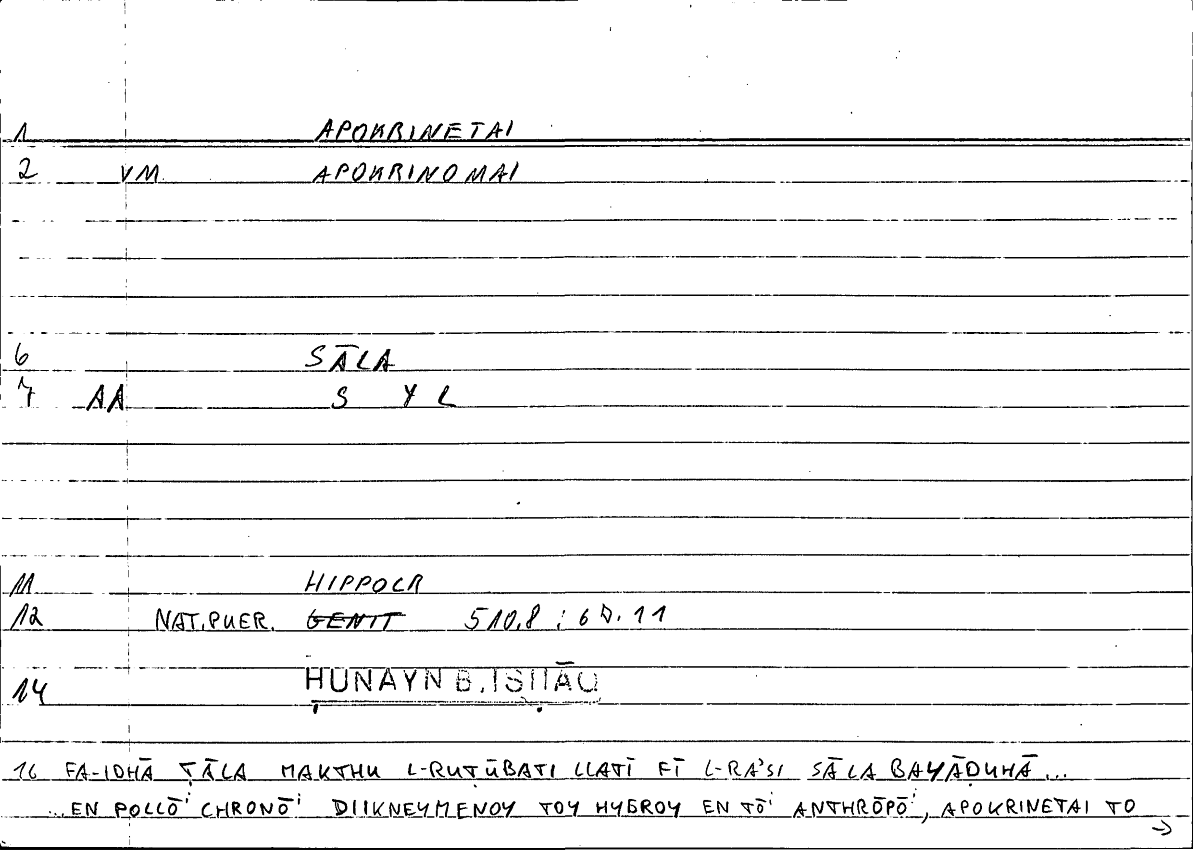 1 APOKRINETAI
2 VM. APOKRINOMAI
6 SĀLA
7 AA S Y L
11 HIPPOCR
12 NAT.PUER. GENIT 510,8 ; 60.11
14 ḤUNAYN B. ISḤĀQ
16 FA-IDHĀ ṬĀLA MAKTHU L-RUṬŪBATI LLATĪ FĪ L-RA'SI SĀLA BAYĀḌUHĀ...
...EN POLLŌⁱ CHRONŌⁱ DIIKNEYMENOY TOY HYGROY EN TŌⁱ ANTHRŌPŌⁱ, APOKRINETAI TO
→